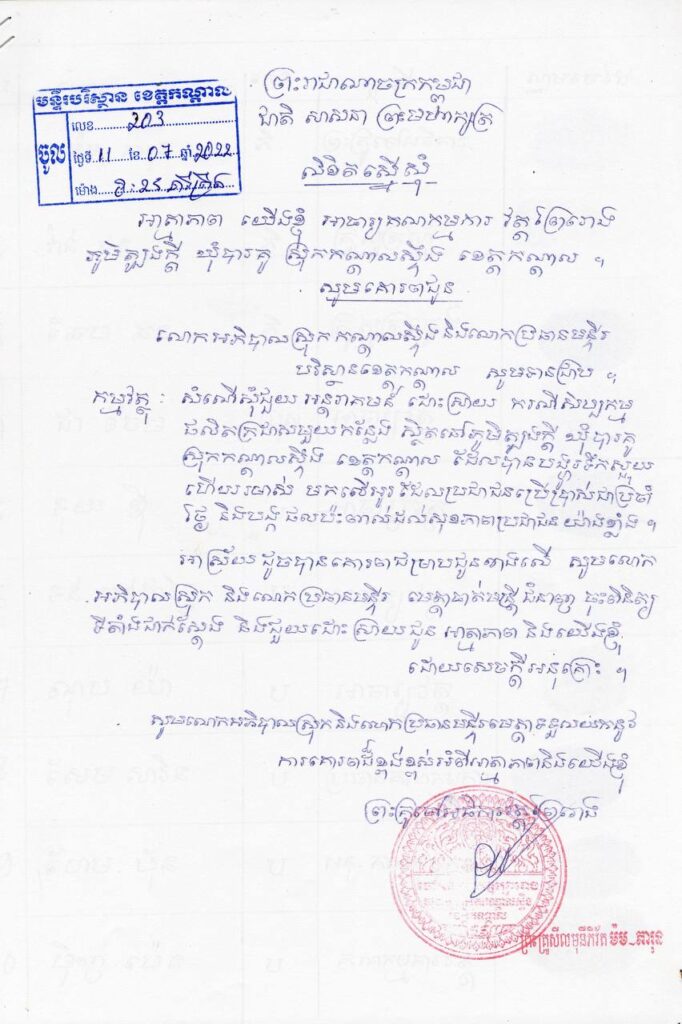 ព្រះរាជាណាចក្រកម្ពុជា
ជាតិ សាសនា ព្រះមហាក្សត្រ
មន្ទីរបរិស្ថាន ខេត្តកណ្តាល
ចូល
លេខ 203
ថ្ងៃទី 11 ខែ 07 ឆ្នាំ 2022
ម៉ោង
លិខិតស្នើសុំ
អាត្មាភាព យើងខ្ញុំ អាចារ្យគណកម្មការ វត្តព្រៃរោង
ភូមិត្បូងក្តី ឃុំបារគូ ស្រុកកណ្តាលស្ទឹង ខេត្តកណ្តាល ។
សូមគោរពជូន
លោកអភិបាលស្រុកកណ្តាលស្ទឹង និងលោកប្រធានមន្ទីរ
បរិស្ថានខេត្តកណ្តាល សូមបានជ្រាប ។
កម្មវត្ថុ : សំណើសុំជួយ អន្តរាគមន៍ ដោះស្រាយ ករណីសិប្បកម្ម
ផលិតក្រដាសមួយកន្លែង ស្ថិតនៅភូមិត្បូងក្តី ឃុំបារគូ
ស្រុកកណ្តាលស្ទឹង ខេត្តកណ្តាល ដែលបានបង្ហូរទឹកស្អុយ
ហើយរមាស់ មកលើអូរដែលប្រជាជនប្រើប្រាស់ជាប្រចាំ
ថ្ងៃ និងបង្កផលប៉ះពាល់ដល់សុខភាពប្រជាជន យ៉ាងខ្លាំង ។
អាស្រ័យដូចបានគោរពជម្រាបជូនខាងលើ សូមលោក
អភិបាលស្រុក និងលោកប្រធានមន្ទីរ មេត្តាចាត់មន្ត្រីជំនាញ ចុះពិនិត្យ
ទីតាំងជាក់ស្តែង និងជួយដោះស្រាយជូន អាត្មាភាព និងយើងខ្ញុំ
ដោយសេចក្តីអនុគ្រោះ ។
សូមលោកអភិបាលស្រុក និងលោកប្រធានមន្ទីរមេត្តាទទួលយកនូវ
ការគោរពដ៏ខ្ពង់ខ្ពស់អំពីអាត្មាភាពនិងយើងខ្ញុំ
ព្រះគ្រូចៅអធិការវត្តព្រៃរោង
ព្រះគ្រូសីលមុនីភិវ័ត ម៉ម ភារុន